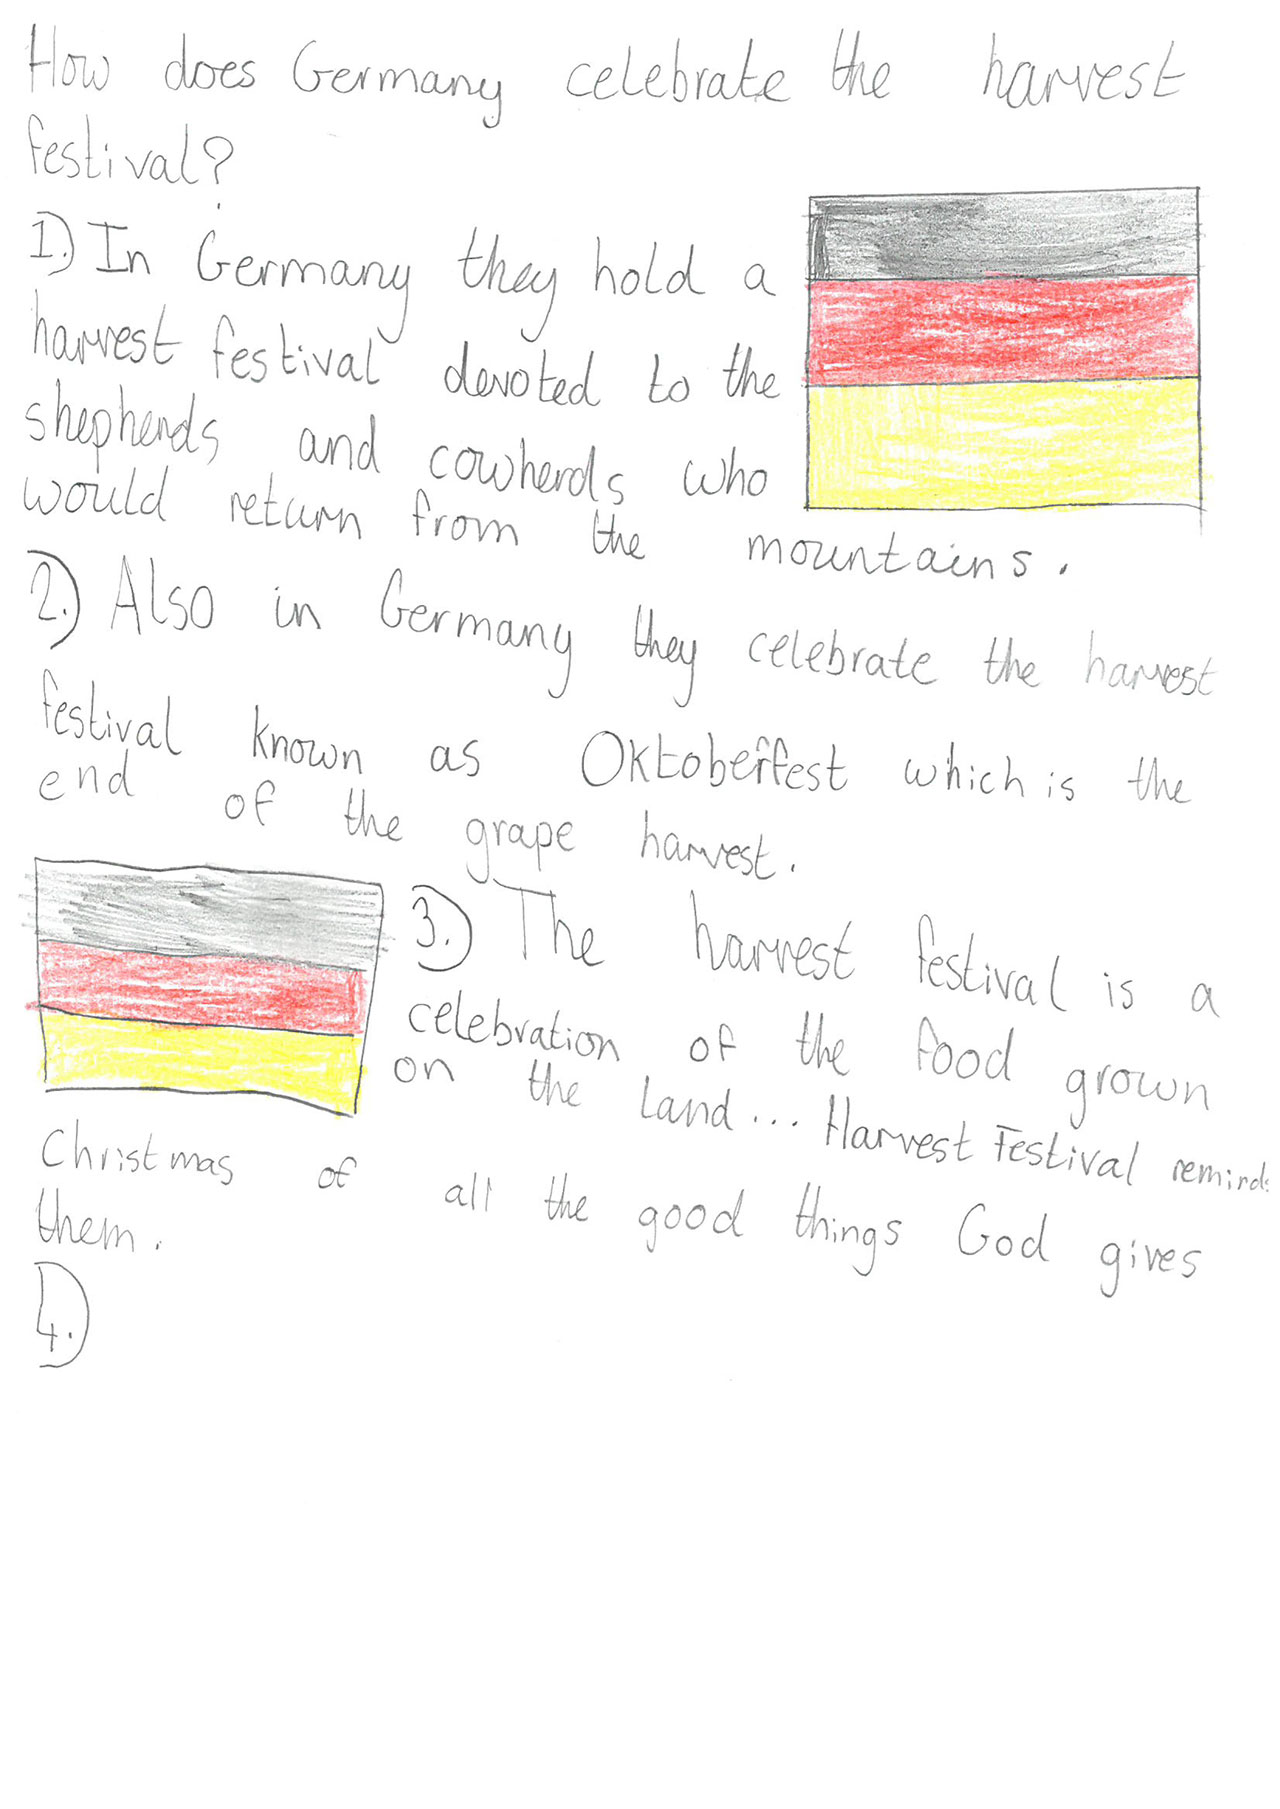 How does Germany celebrate the harvest
festival?
1.) In Germany they hold a
harvest festival devoted to the
shepherds and cowherds who
would return from the mountains.
2.) Also in Germany they celebrate the harvest
festival known as Oktoberfest which is the
end of the grape harvest.
3.) The harvest festival is a
celebration of the food grown
on the land... Harvest Festival reminds
Christmas of all the good things God gives
them.
4.)